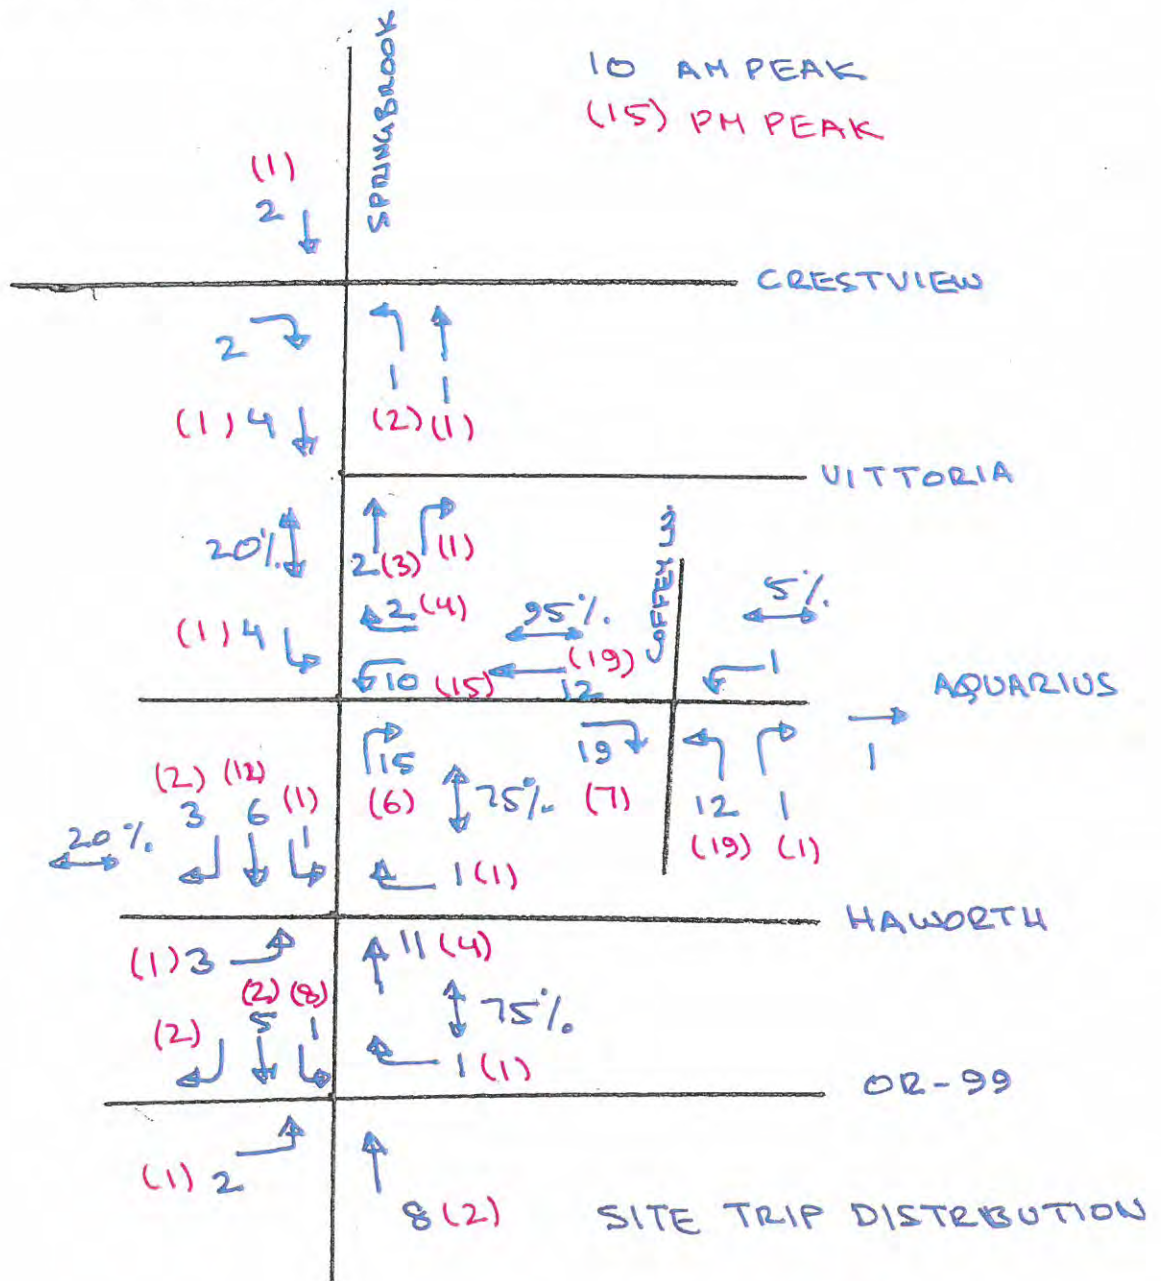 SPRINGBROOK
10 AM PEAK
(15) PM PEAK
(1)
2
CRESTVIEW
2
1 1
(1) 4
(2) (1)
VITTORIA
20%
2 (3) (1)
COFFEY LN.
2 (4)
95%
5%
(1) 4
(19)
1
10 (15)
12
AQUARIUS
15
19
1
(2) (12) (1)
(6)
75%
(7)
12 1
3 6 1
(19) (1)
20%
1 (1)
HAWORTH
(1) 3
11 (4)
(2) (8)
75%
(2)
5 1
1 (1)
OR-99
(1) 2
8 (2)
SITE TRIP DISTRIBUTION